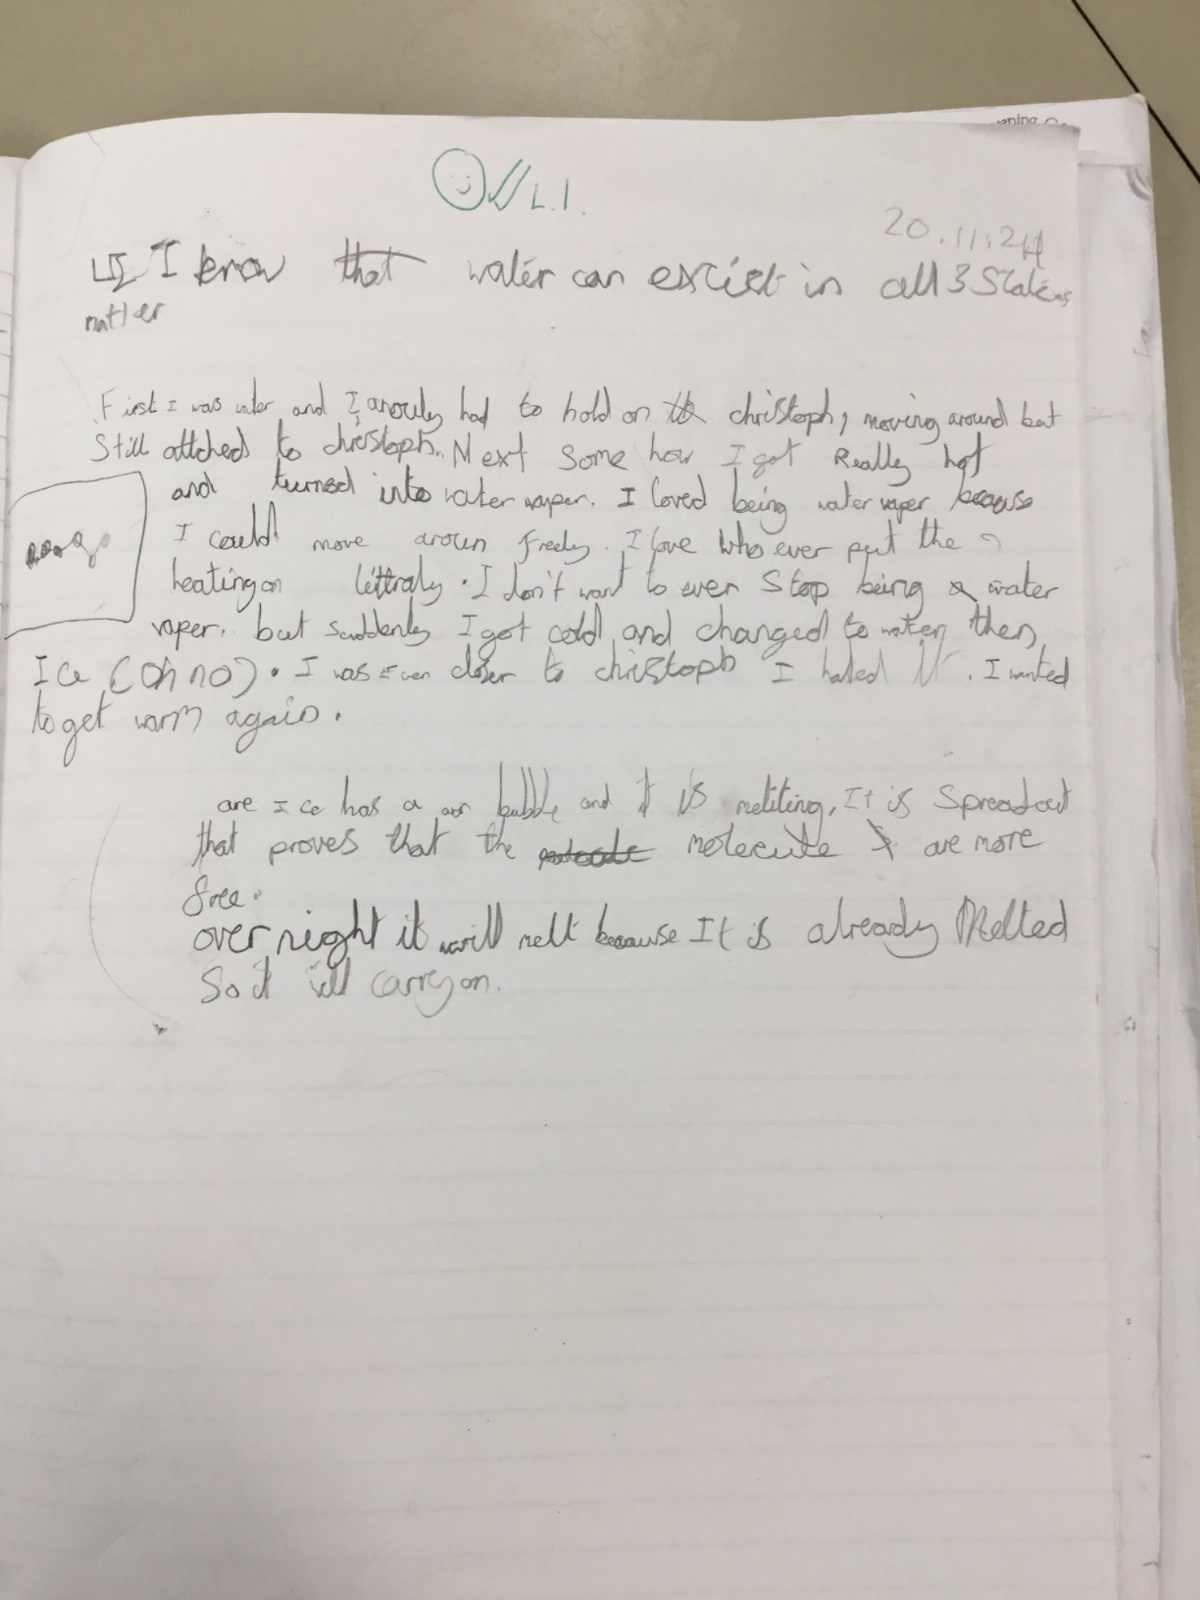 L.I.
20.11.24
LI I know that water can excist in all 3 States
matter
First I was water and I anouly had to hold on to christoph, moving around but
Still attched to christoph. Next Some how I got Really hot
and turned into water vaper. I loved being water vaper because
I could move aroun freely. I love who ever put the
heating on littraly. I don't want to ever Stop being a water
vaper. but suddenly I got cold and changed to water, then,
Ice (Oh no). I was Even closer to christoph I hated it. I wanted
to get warm again.
are Ice has a air bubble and it is meltiting, It is Spread out
that proves that the molecule are more
free.
over night it will melt because It is already Melted
So it will carry on.